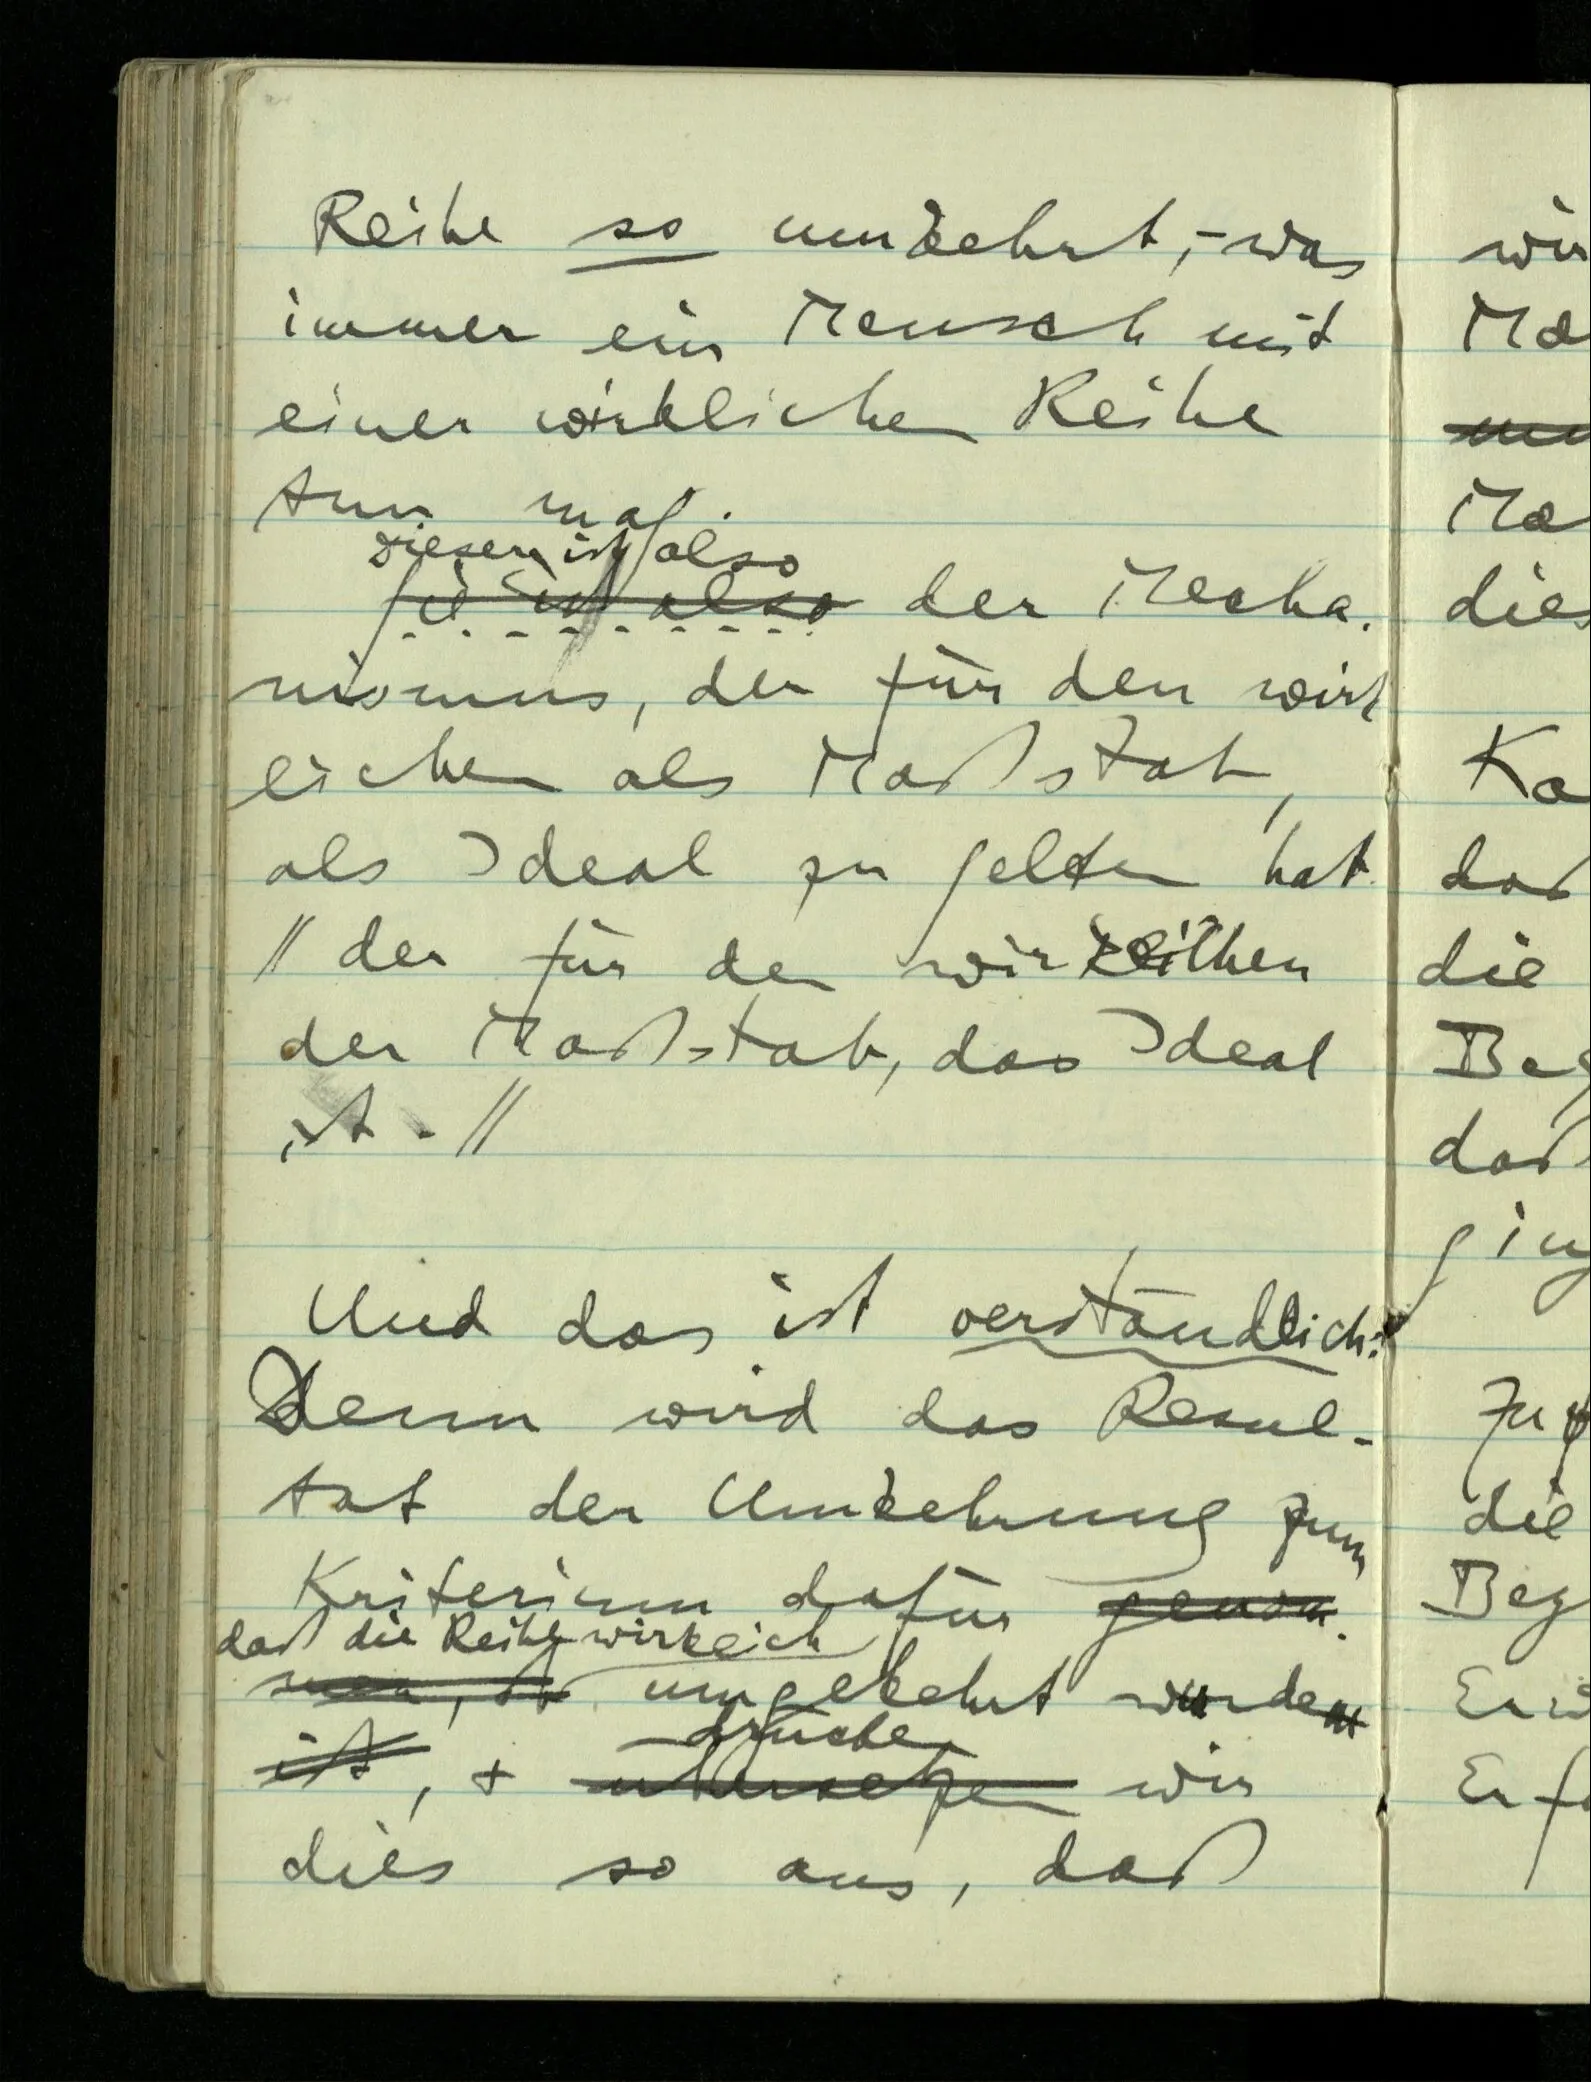 Reihe so umkehrt, – was
immer ein Mensch mit
einer wirklichen Reihe
tun mag.
dieser ist also
ist also der Mecha-
nismus, der für den wirk
lichen als Maßstab,
als Ideal zu gelten hat
// der für den wirklichen
der Maßstab, das Ideal
ist. //
Und das ist verständlich:
Denn wird das Resul-
tat der Umkehrung zum
Kriterium dafür genom-
daß die Reihe wirklich
men, umgekehrt wurde
drücken
ist, + übersetzen wir
dies so aus, daß
wir
Ma
Ma
dies
Ka
daß
die
Beg
daß
ging
die
Beg
Erw
Erfa